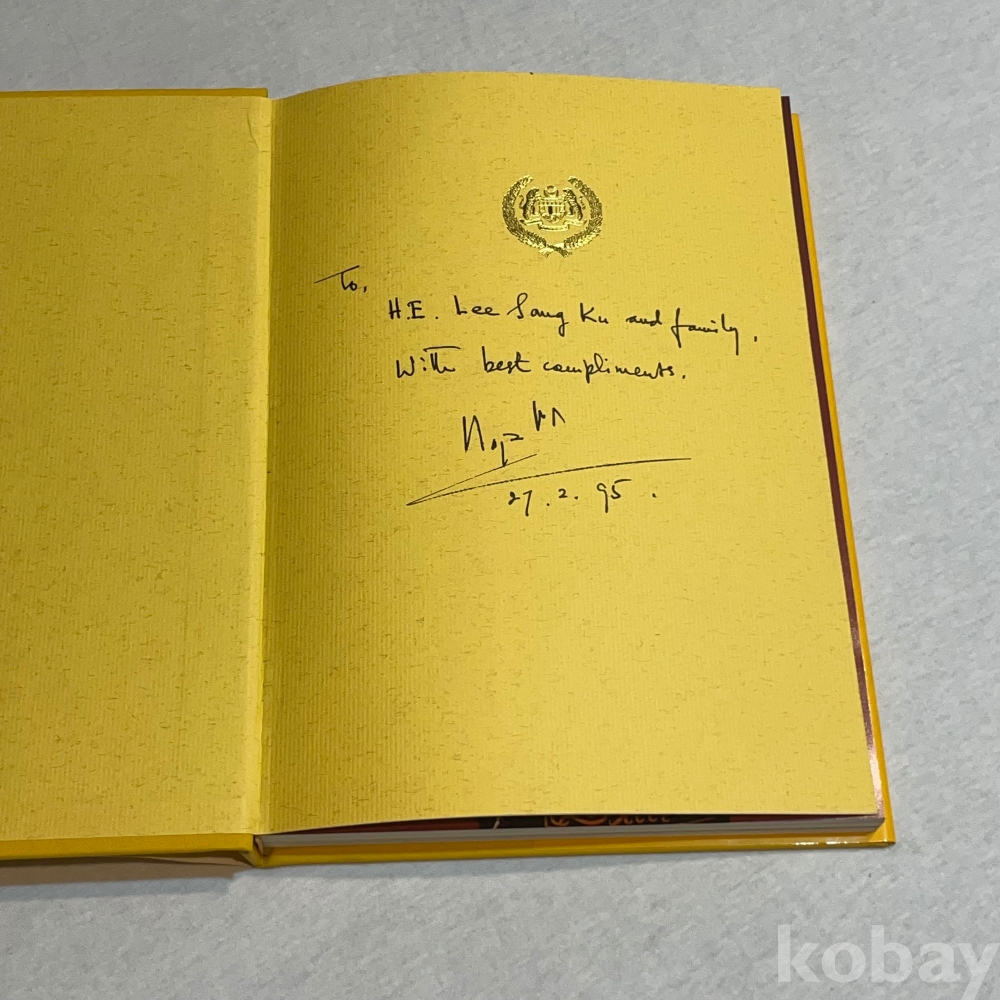 To,
H.E. Lee Sang Ku and family,
With best compliments.
27.2.95.
kobay